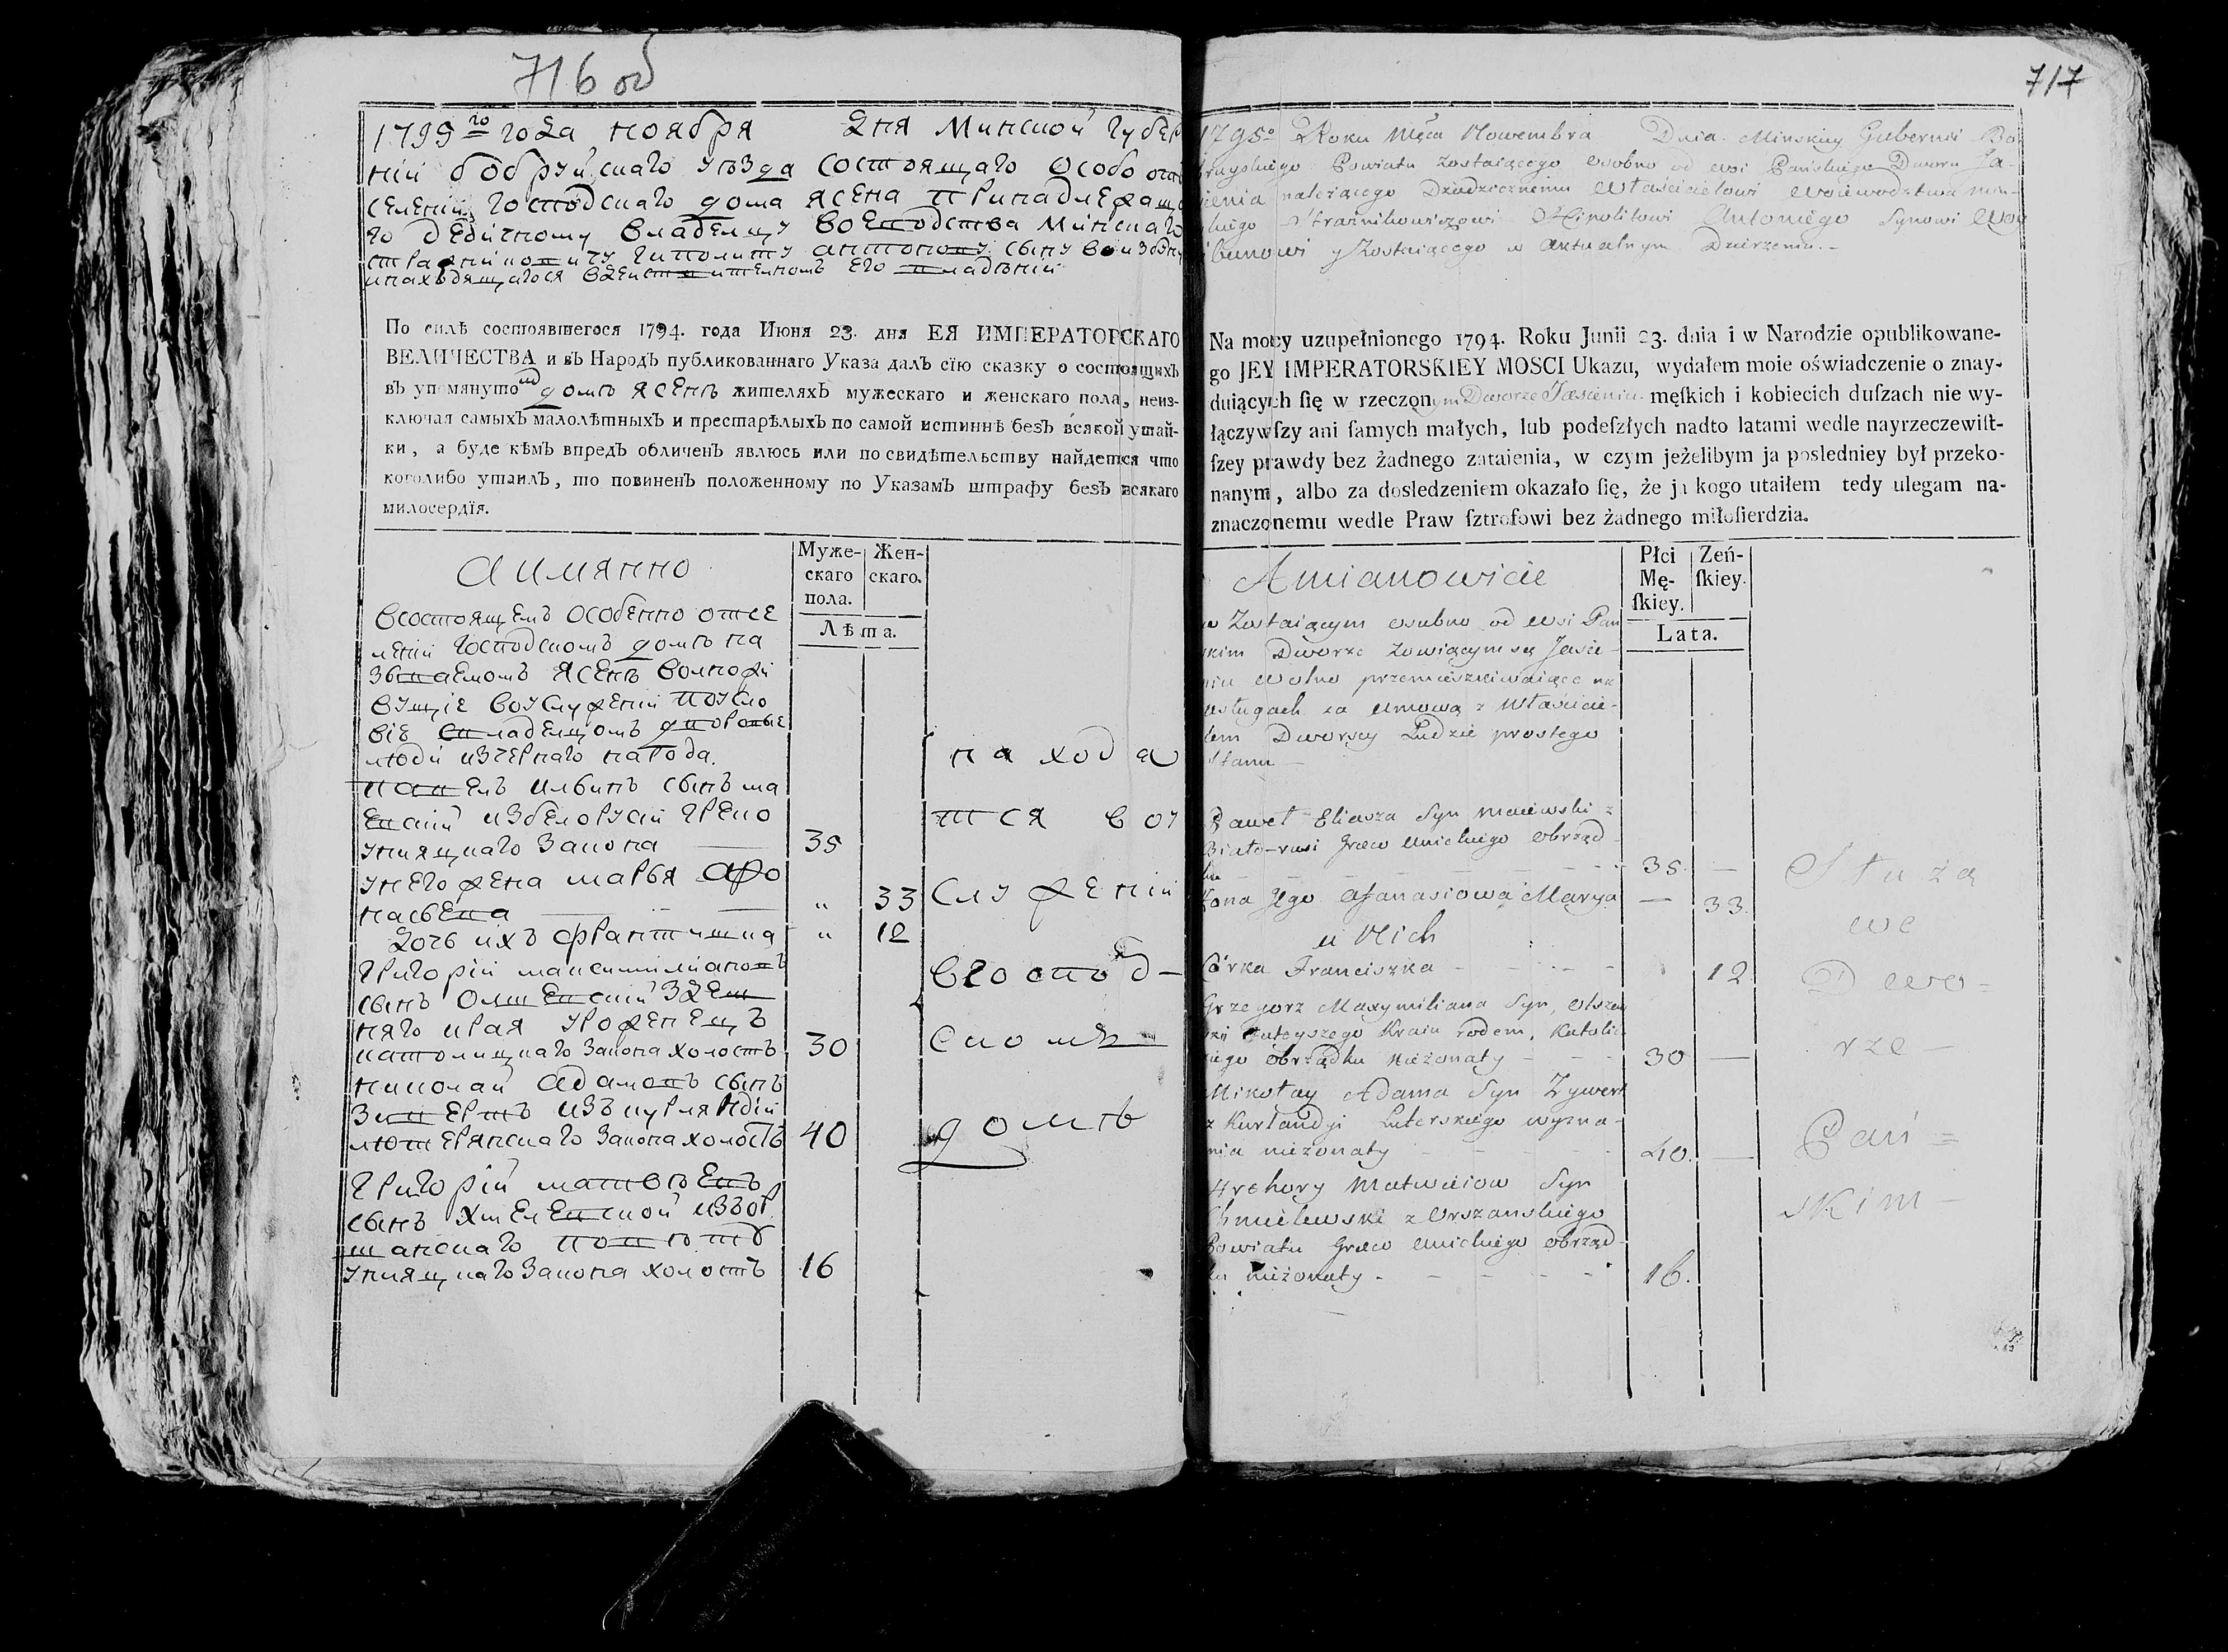 716 об
1795го года ноября дня Минской губер
ніи бобруйскаго уѣзда состоящаго особо от
селеній господскаго дома Ясена принадлежащ
го дедичному владелцу воеводства Минскаго
стражниковичу Гиполиту Антонову сыну
инаходящагося вдействителномъ его владѣніи
По силѣ состоявшегося 1794. года Июня 23. дня ЕЯ ИМПЕРАТОРСКАГО
ВЕЛИЧЕСТВА и въ Народъ публикованнаго Указа далъ сїю сказку о состоящихъ
въ упомянутомъ домѣ Ясенѣ жителяхъ мужескаго и женскаго пола, неиз-
ключая самыхъ малолѣтныхъ и престарѣлыхъ по самой истиннѣ безъ всякой утай-
ки, а буде кѣмъ впредъ обличенъ явлюсь или по свидѣтельству найдется что
коголибо утаилъ, то повиненъ положенному по Указамъ штрафу безъ всякаго
милосердїя.
Аимянно
Муже-
скаго
пола.
Жен-
скаго.
Лѣта.
Всостоящемъ особенно отсе
леніи господскомъ домѣ на
зываемомъ Ясенѣ волножи
вущіе воуслуженіи поусло
вію свладелцомъ дворовые
люди изчернаго народа.
Павелъ Ильинъ сынъ ма
евскій избелорусіи греко
униацкаго закона 35
унего жена Марья Афо
насьева " 33
дочь ихъ Францишка " 12
Григорій Максимиліановъ
сынъ Олшевскій здеш
няго края уроженецъ
католицкаго закона холостъ 30
Николай Адамовъ сынъ
Зивертъ изъ курляндіи
лютерянскаго закона холостъ 40
Григорій Матвѣевъ
сынъ Хмелевской изъор
шанскаго повѣту
униацкаго закона холостъ 16
находя
тся воу
служеніи
вгоспод-
скомъ
домѣ
717
1795o Roku Męca Nowembra Dnia Minskiey Gubernii Bo
bruyskiego Powiatu zostaiącego osobno od wsi Pańskiego Dworu Ja-
sienia należącego Dziedzicznemu Właścicielowi Woiewodztwa Min-
skiego Strażnikowiczowi Hipolitowi Antoniego Synowi
y Zostaiącego w aktualnym Dzierżeniu.-
Na mocy uzupełnionego 1794. Roku Junii 23. dnia i w Narodzie opublikowane-
go JEY IMPERATORSKIEY MOSCI Ukazu, wydałem moie oświadczenie o znay-
duiących ſię w rzeczonym Dworze Jasieniu męſkich i kobiecich duſzach nie wy-
łączywſzy ani ſamych małych, lub podeſzłych nadto latami wedle nayrzeczewiſt-
ſzey prawdy bez żadnego zataienia, w czym jeżelibym ja posledniey był przeko-
nanym, albo za dosledzeniem okazało ſię, że ja kogo utaiłem tedy ulegam na-
znaczonemu wedle Praw ſztrofowi bez żadnego miłoſierdzia.
Amianowicie
Płci
Mę-
ſkiey.
Zeń-
ſkiey.
Lata.
w Zostaiącym osubno od wsi Pań
skim Dworze zowiącym się Jasie-
niu wolno przemieszkiwaiące na
usługach za umową z Właścicie-
lem Dworscy Ludzie prostego
stanu
Paweł Eliasza Syn Maiewski z
Biało-rusi Græco Unickiego obrząd-
ku 35. —
Żona Jego Afanasiowa Marya — 33.
u Nich
Córka Franciszka 12
Grzegorz Maxymiliana Syn, Olszew
ski tuteyszego Kraiu rodem, Katolic
kiego obrządku nieżonaty 30 —
Mikołay Adama Syn Zywert
z Kurlandyi Luterskiego wyzna-
nia nieżonaty 40. —
Hrehory Matwieiow Syn
Chmielewski z Orszanskiego
Powiatu Græco Unickiego obrząd-
ku nieżonaty - 16.
Służą
we
Dwo=
rze —
Pań=
skim —